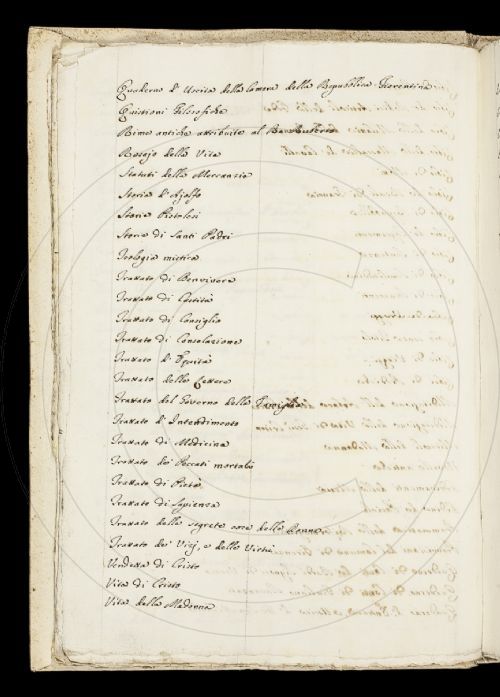 Quaderno d'Uscita della Camera della Repubblica Fiorentina
Quistioni Filosofiche
Rime antiche attribuite al
Rosajo della Vita
Statuti della Mercanzia
Storia d'Ajolfo
Storie Pistolesi
Storie di Santi Padri
Teologia mistica
Trattato di Benvivere
Trattato di Castità
Trattato di Consiglio
Trattato di Consolazione
Trattato d'Equità
Trattato delle
Trattato del Governo della Famiglia
Trattato d'Intendimento
Trattato di Medicina
Trattato dei Peccati mortali
Trattato di Pietà
Trattato di Sapienza
Trattato delle segrete cose delle Donne
Trattato dei Vizj, e delle Virtù
Vendetta di Cristo
Vita di Cristo
Vita della Madonna